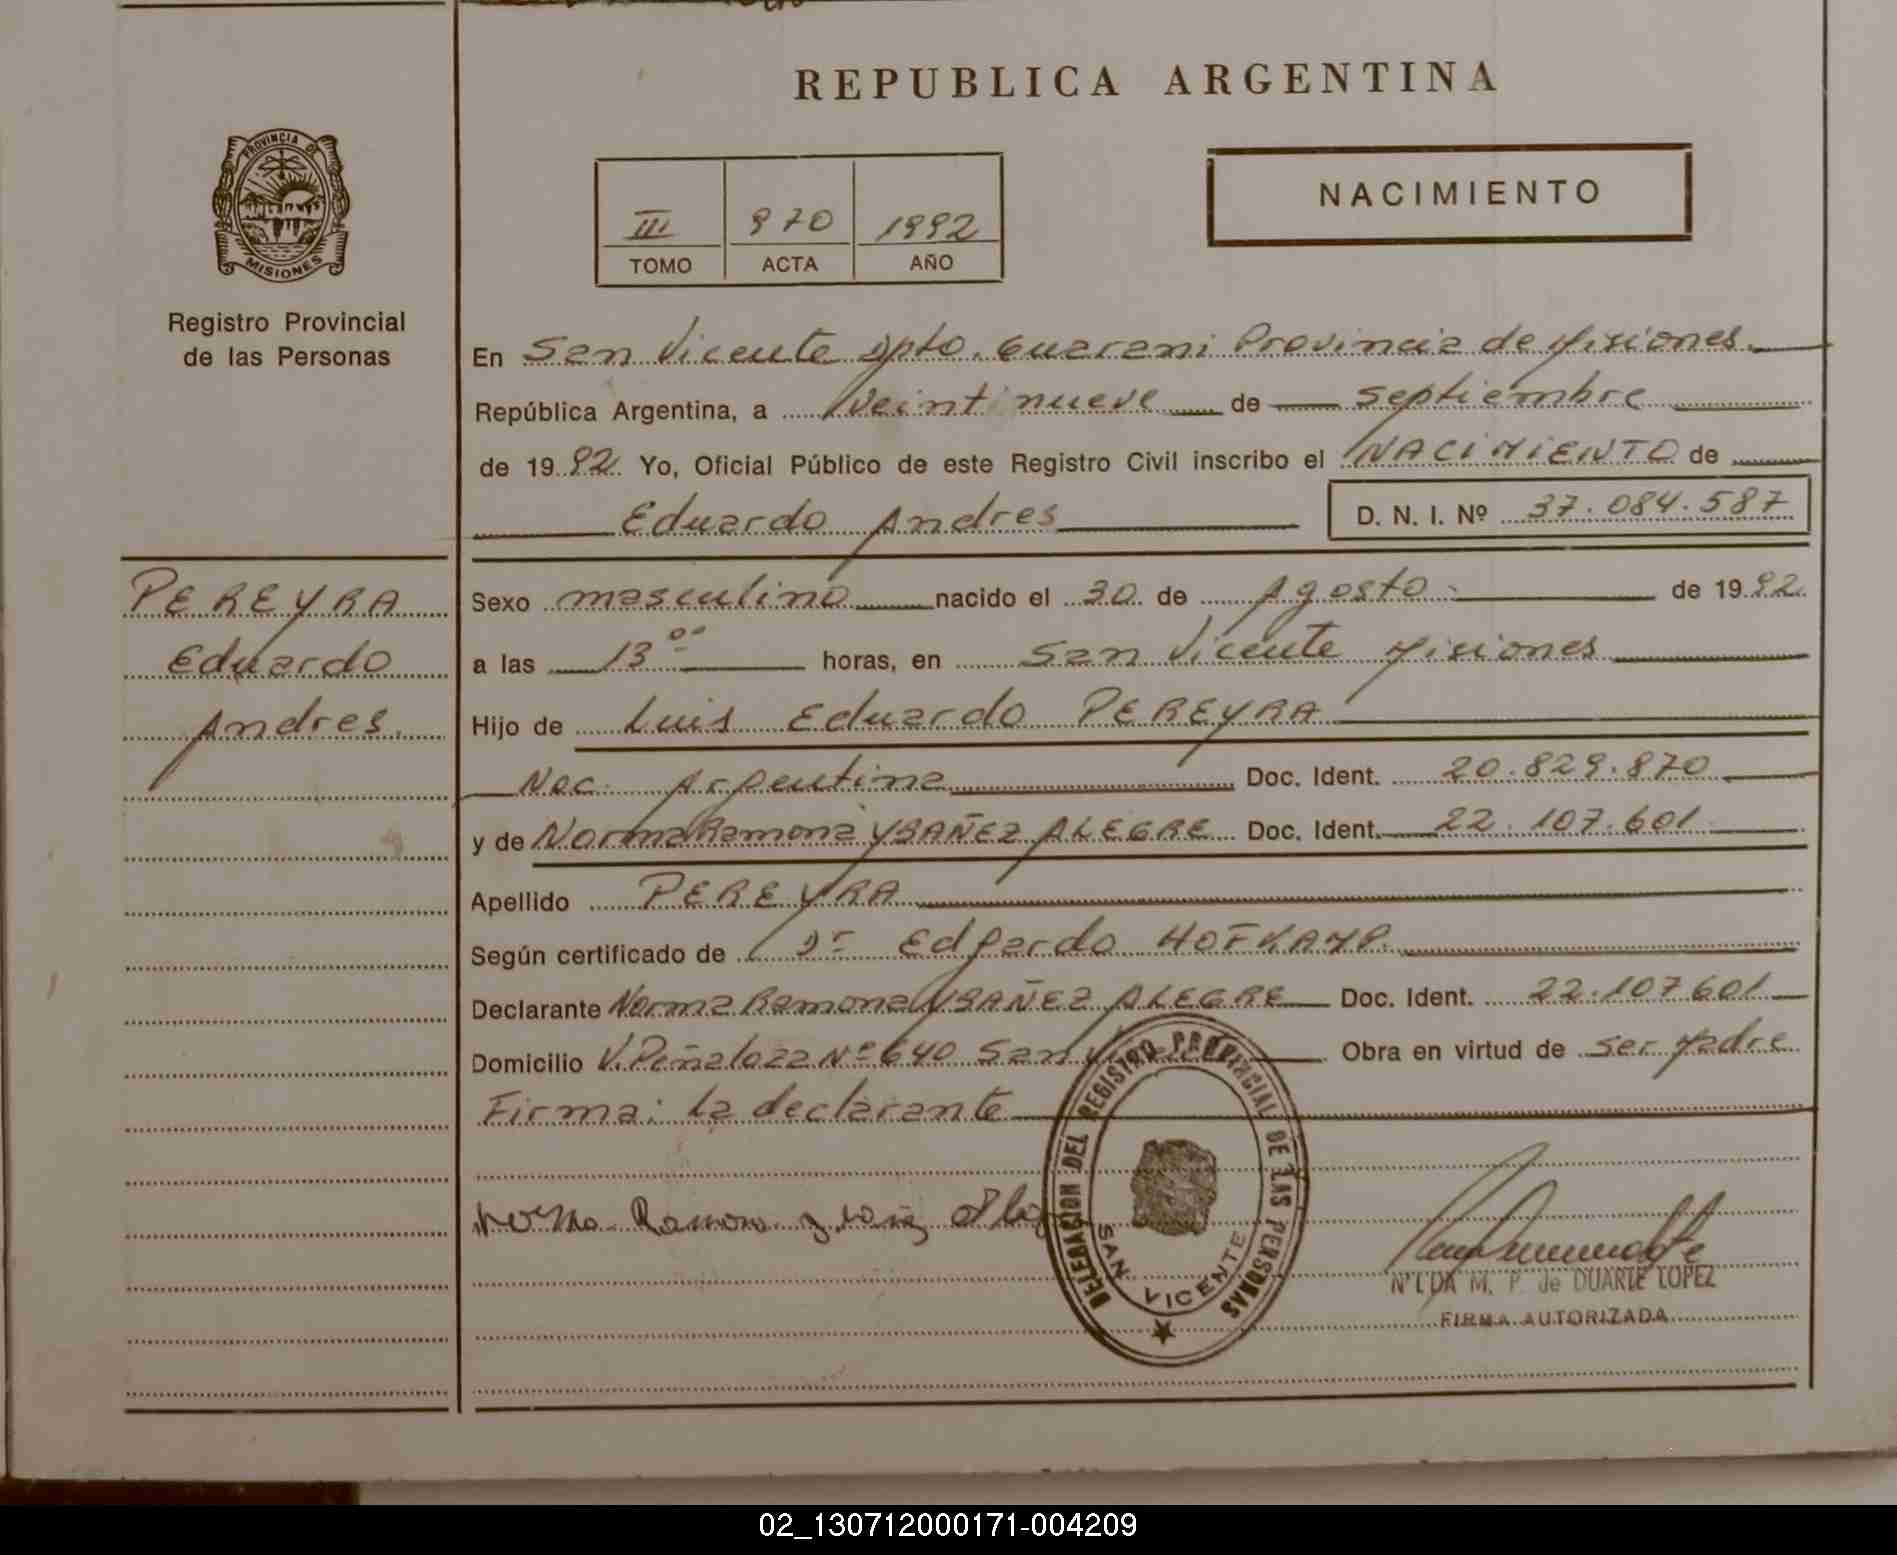 REPUBLICA ARGENTINA
PROVINCIA DE
MISIONES
Registro Provincial
de las Personas
III 970 1992
TOMO ACTA AÑO
NACIMIENTO
En San Vicente Dpto. Guarani Provincia de Misiones.
República Argentina, a veintinueve de septiembre
de 1992. Yo, Oficial Público de este Registro Civil inscribo el NACIMIENTO de
Eduardo Andres D. N. I. Nº 37.084.587
PEREYRA
Eduardo
Andres.
Sexo masculino nacido el 30 de Agosto de 1992.
a las 13 00 horas, en San Vicente Misiones
Hijo de Luis Eduardo PEREYRA
Nac. Argentina Doc. Ident. 20.829.870
y de Norma Ramona YBAÑEZ ALEGRE Doc. Ident. 22.107.601
Apellido PEREYRA
Según certificado de Dr Edgardo HOFKAMP.
Declarante Norma Ramona YBAÑEZ ALEGRE Doc. Ident. 22.107601
Domicilio V. Peñaloza Nº 640 San Obra en virtud de ser Madre
Firma: La declarante
Norma Ramona
DELEGACION DEL REGISTRO PROVINCIAL DE LAS PERSONAS
SAN VICENTE
M. P. de DUARTE LOPEZ
FIRMA AUTORIZADA
02_130712000171-004209